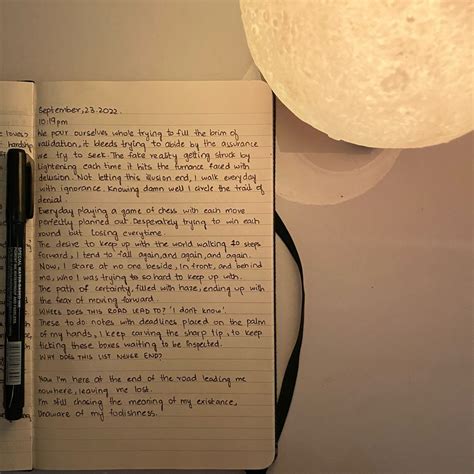 September,23.2022.
10:19pm
We pour ourselves whole trying to fill the brim of
validation, it bleeds trying to abide by the assurance
we try to seek. The fake reality getting struck by
lightening each time it hits the turrance faced with
delusion. Not letting this illusion end, I walk everyday
with ignorance. Knowing damn well I circle the trail of
denial.
Everyday playing a game of chess with each move
perfectly planned out. Desperately trying to win each
round but losing everytime.
The desire to keep up with the world walking 10 steps
forward, I tend to fall again, and again, and again.
Now, I stare at no one beside, in front, and behind
me, who I was trying so hard to keep up with.
The path of certainty, filled with haze, ending up with
the fear of moving forward.
WHERE DOES THIS ROAD LEAD TO? 'I don't know'.
These to do notes with deadlines placed on the palm
of my hands, I keep carving the sharp tip, to keep
ticking these boxes waiting to be inspected.
WHY DOES THIS LIST NEVER END?
Now I'm here at the end of the road leading me
nowhere, leaving me lost.
I'm still chasing the meaning of my existance,
Unaware of my foolishness.